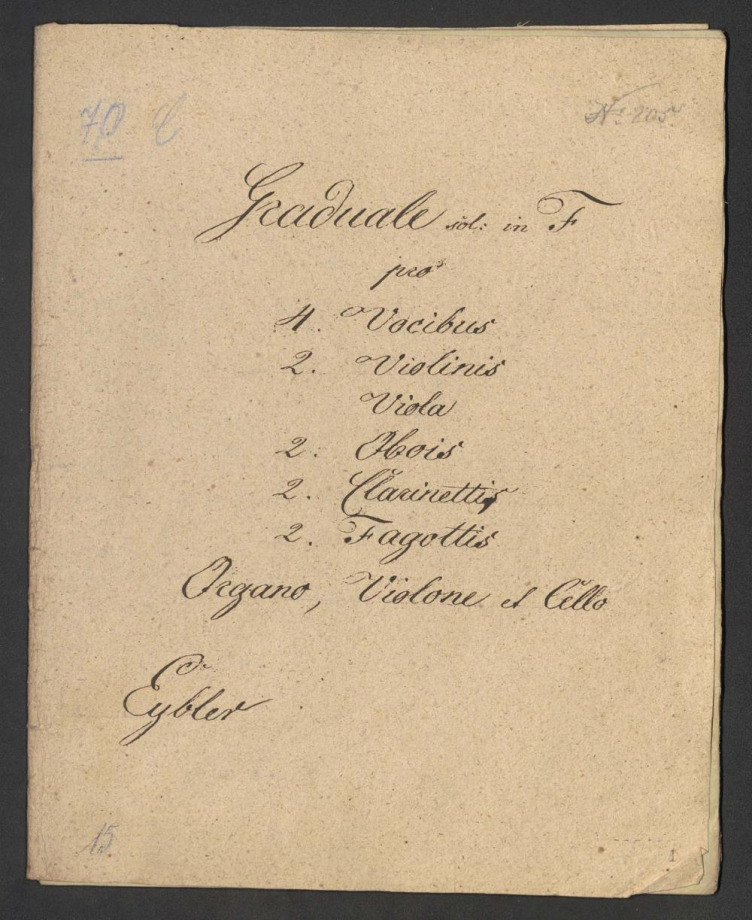 70
Nº 205
Graduale sol: in F
pro
4. Vocibus
2. Violinis
Viola
2. Obois
2. Clarinettis
2. Fagottis
Organo, Violone et Cello
Eybler
15
1